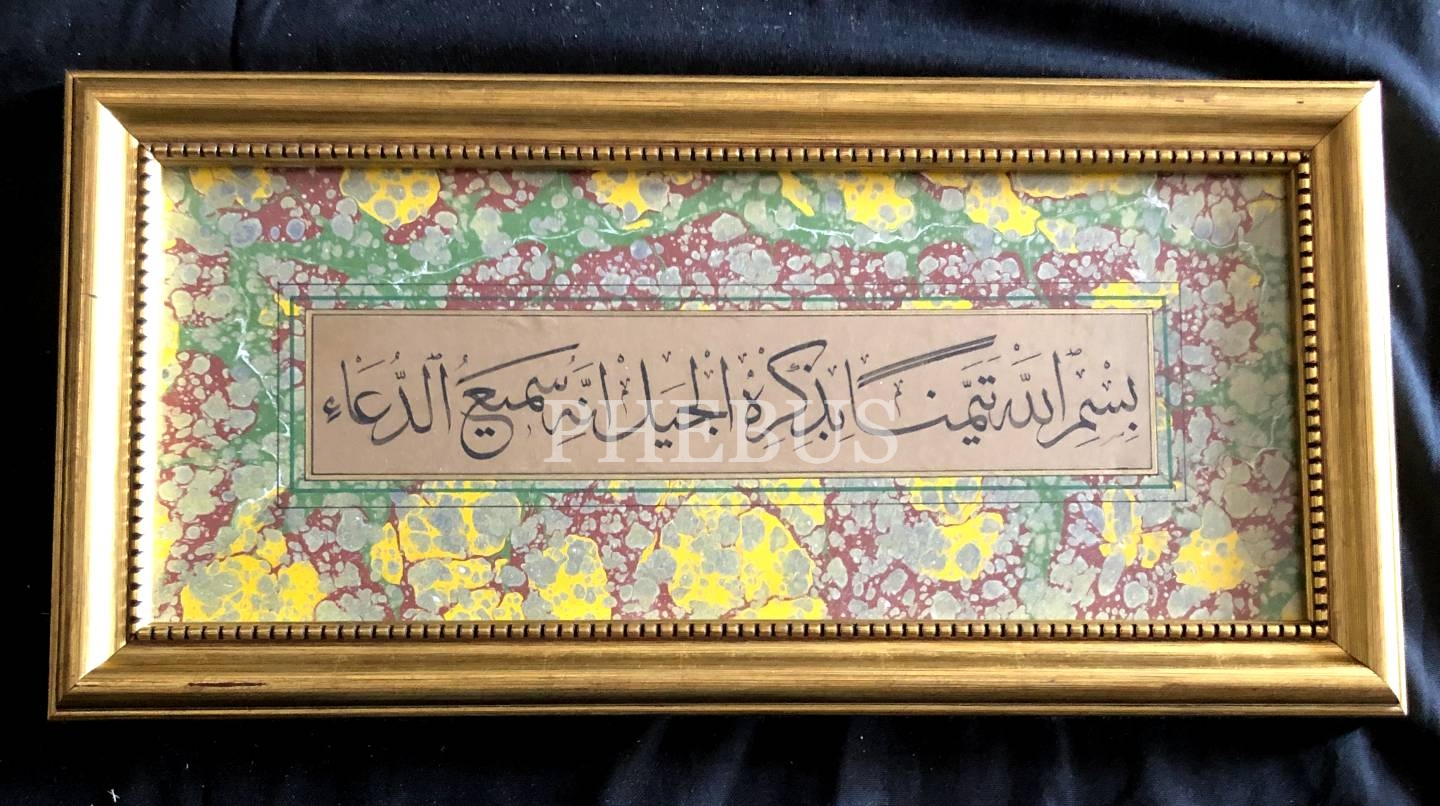 بِسْمِ اللّٰه تَيَمُّنًا بِذِكْرِهِ الْجَميل اِنَّهُ سَميعُ الدُّعَاء
PHEBUS